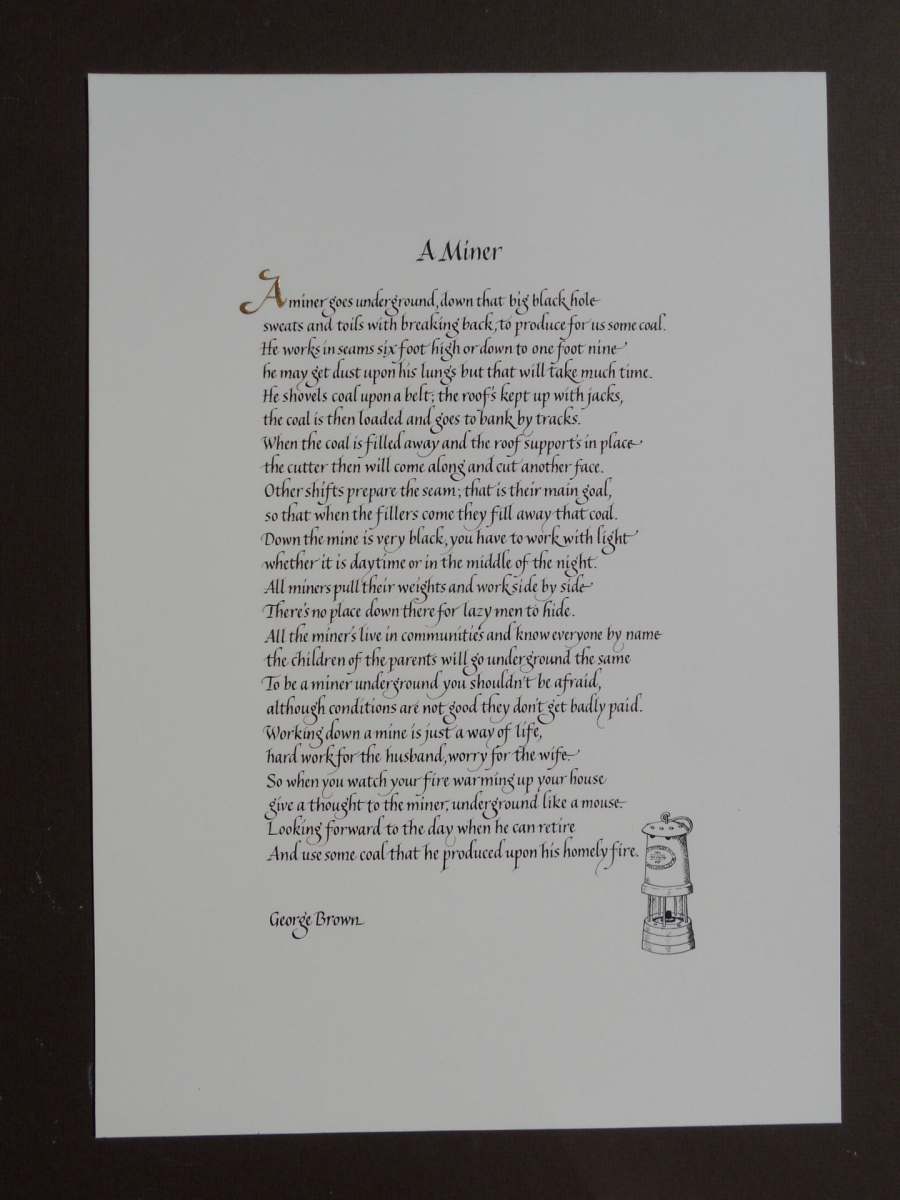 A Miner
A miner goes underground, down that big black hole
sweats and toils with breaking back, to produce for us some coal.
He works in seams six foot high or down to one foot nine
he may get dust upon his lungs but that will take much time.
He shovels coal upon a belt; the roof's kept up with jacks,
the coal is then loaded and goes to bank by tracks.
When the coal is filled away and the roof support's in place
the cutter then will come along and cut another face.
Other shifts prepare the seam; that is their main goal,
so that when the fillers come they fill away that coal.
Down the mine is very black, you have to work with light
whether it is daytime or in the middle of the night.
All miners pull their weights and work side by side
There's no place down there for lazy men to hide.
All the miner's live in communities and know everyone by name
the children of the parents will go underground the same
To be a miner underground you shouldn't be afraid,
although conditions are not good they don't get badly paid.
Working down a mine is just a way of life,
hard work for the husband, worry for the wife.
So when you watch your fire warming up your house
give a thought to the miner, underground like a mouse.
Looking forward to the day when he can retire
And use some coal that he produced upon his homely fire.
George Brown